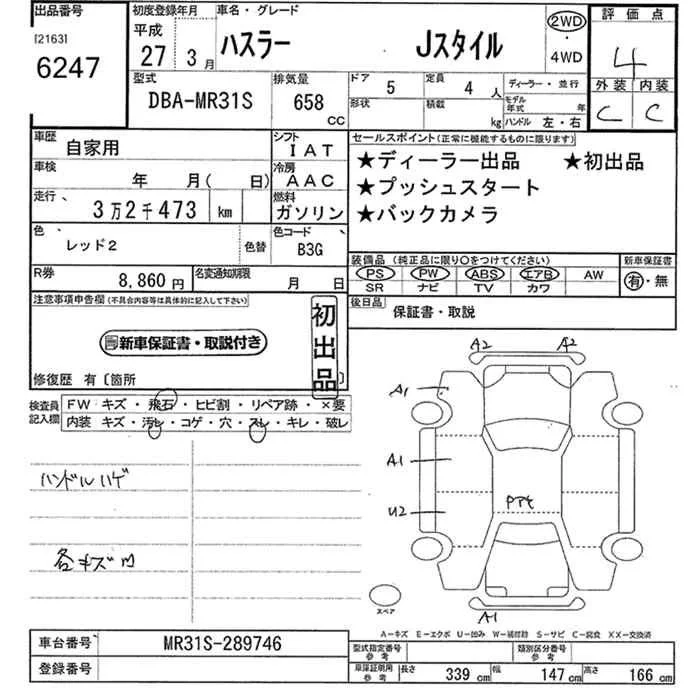 出品番号
[2163]
6247
初度登録年月
平成
27 3月
車名・グレード
ハスラー Jスタイル
2WD
・
4WD
評価点
4
外装 内装
C C
型式
DBA-MR31S
排気量
658
CC
ドア 5
定員 4 人
ディーラー・並行
形状
積載 kg
モデル年式 年
ハンドル 左・右
車歴 自家用
シフト IAT
車検 年 月( 日)
冷房 AAC
走行、 3万2千473 km
燃料 ガソリン
色、 レッド2 色替
色コード、 B3G
R券 8,860円
名変通知期限 月 日
セールスポイント(正常に機能するものに限ります)
★ディーラー出品 ★初出品
★プッシュスタート
★バックカメラ
装備品 (純正品に限り○をつけてください)
新車保証書
PS PW ABS エアB AW
有・無
SR ナビ TV カワ
後日品
保証書・取説
注意事項申告欄(不具合内容等は具体的に記入して下さい)
新車保証書・取説付き
初出品
修復歴 有〔箇所 〕
検査員記入欄
FW キズ・飛石・ヒビ割・リペア跡・×要
内装 キズ・汚レ・コゲ・穴・スレ・キレ・破レ
ハンドルハゲ
各キズ凹
A2 A2
A1
A1
U2
A1
スペア
A−キズ E−エクボ U−凹み W−補修跡 S−サビ C−腐食 XX−交換済
車台番号 MR31S-289746
登録番号
型式指定番号 参考
類別区分番号 参考
車庫証明用 参考
長さ 339 cm 幅 147 cm 高さ 166 cm